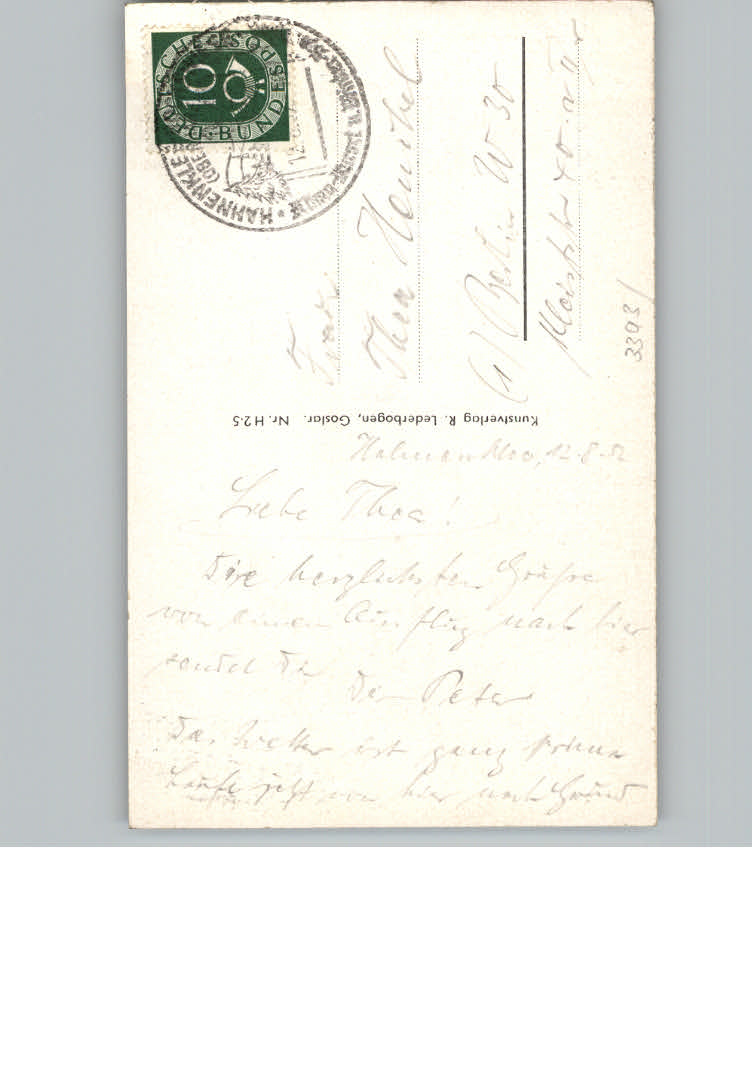 DEUTSCHE BUNDESPOST
10
HANNENKLEE
Frau
Thea
(1) Berlin W 30
3393/
Kunstverlag R. Lederbogen, Goslar. Nr. H 2-5
12.8.52
Liebe Thea!
Die herzlichsten Grüße
von einem Ausflug nach hier
sendet Dir
Der Peter
Das Wetter ist ganz prima
jetzt von hier nach Grund